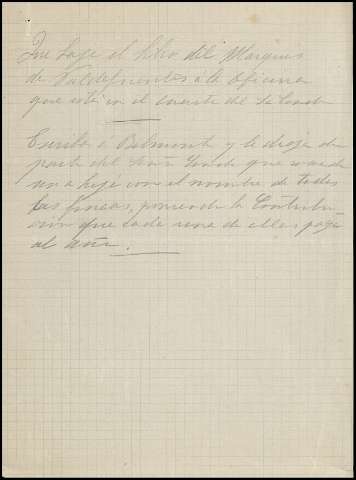 Que baje el libro del Marques
de Valdefuentes a la oficina
que está en el cuarto del Sr Conde
Escriba á Belmont y le diga de
parte del Señor Conde que mande
una hoja con el nombre de todas
las fincas, poniendo la Contribu
ción que cada una de ellas paga
al año.